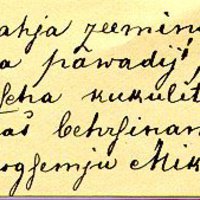 ahja zeemin
a pawadij,
kukulit
aś behrsinam
ogsemju Mik